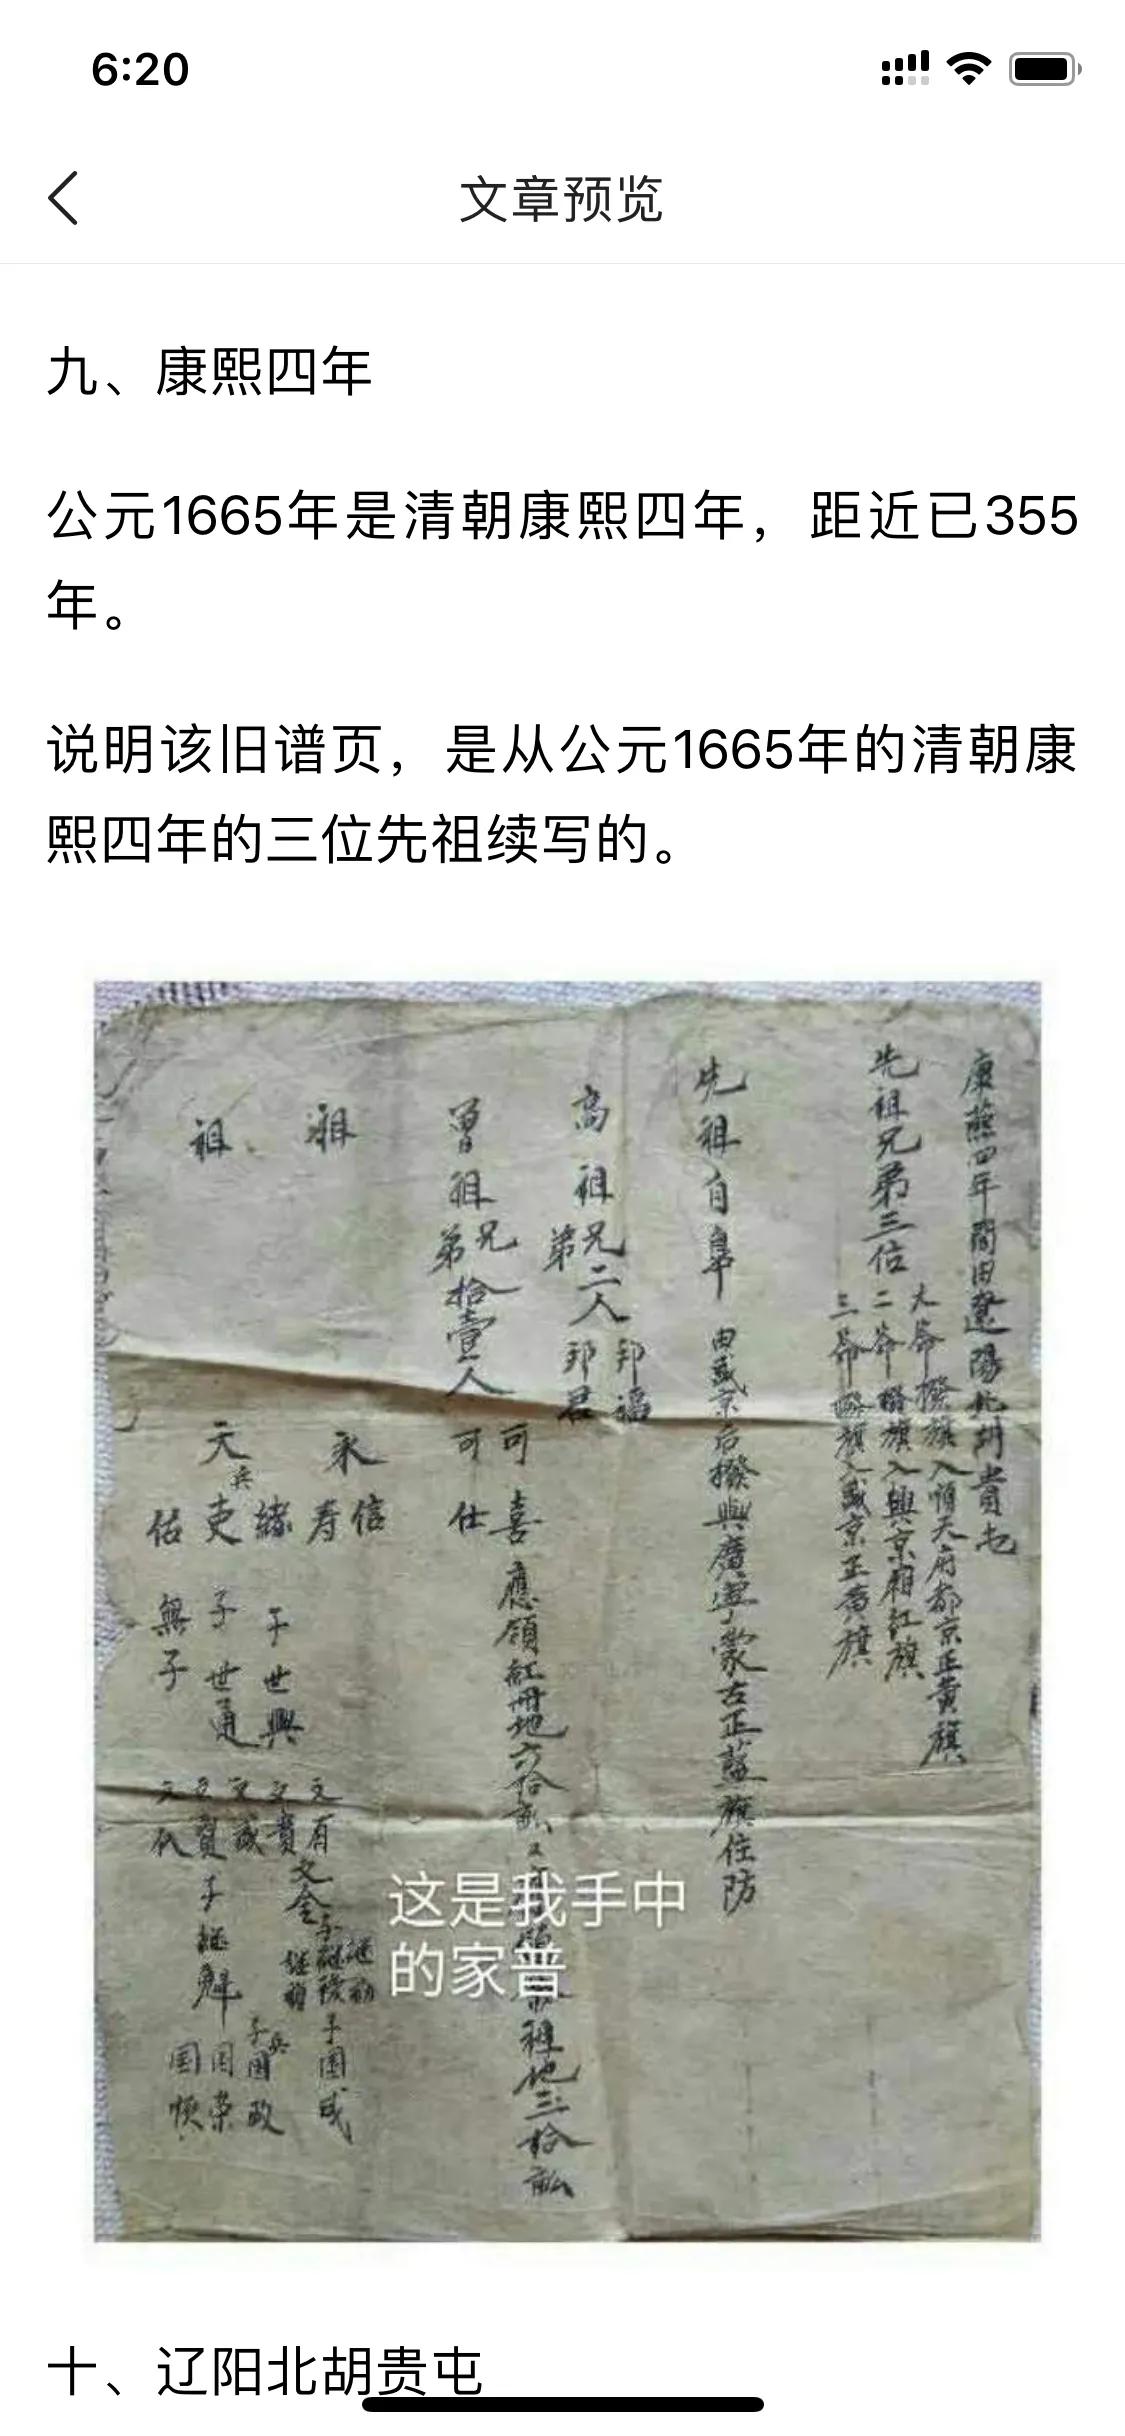 6:20
文章预览
九、康熙四年
公元1665年是清朝康熙四年，距近已355
年。
说明该旧谱页，是从公元1665年的清朝康
熙四年的三位先祖续写的。
康熙四年間由遼陽北胡貴屯
先祖兄弟三位
大爺撥旗入順天府都京正黄旗
二爺撥旗入興京廂紅旗
三爺撥旗入盛京正旗
先祖自阜
由盛京后撥興廣寧蒙古正藍旗住防
高祖兄弟二人
邦福
邦君
曽祖兄弟拾壹人
可喜
應領紅冊地六拾畝
租地三拾畝
可仕
祖
永
信
寿
祖
天
緒
子世興
兵
吏
子世通
佑
無子
文有
文貴
文誠
文金
子継
子國
兵
子國政
國榮
这是我手中
的家普
十、辽阳北胡贵屯